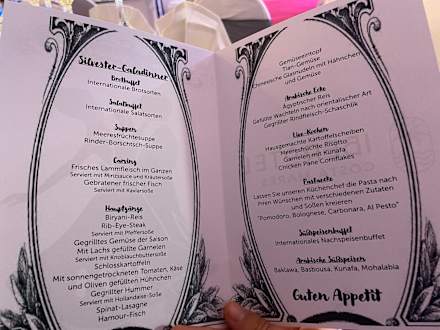 Silvester-Galadinner
Brotbuffet
Internationale Brotsorten
Salatbuffet
Internationale Salatsorten
Suppen
Meeresfrüchtesuppe
Rinder-Borschtsch-Suppe
Carving
Frisches Lammfleisch im Ganzen
Serviert mit Minzsauce und Kräutersoße
Gebratener frischer Fisch
Serviert mit Kaviarsoße
Hauptgänge
Biryani-Reis
Rib-Eye-Steak
Serviert mit Pfeffersoße
Gegrilltes Gemüse der Saison
Mit Lachs gefüllte Garnelen
Serviert mit Knoblauchbuttersoße
Schlosskartoffeln
Mit sonnengetrockneten Tomaten, Käse
und Oliven gefüllten Hühnchen
Gegrillter Hummer
Serviert mit Hollandaise-Soße
Spinat-Lasagne
Hamour-Fisch
Gemüseeintopf
Tian-Gemüse
Chinesische Glasnudeln mit Hähnchen
und Gemüse
Arabische Ecke
Ägyptischer Reis
Gefüllte Wachteln nach orientalischer Art
Gegrillter Rindfleisch-Schaschlik
Live-Kochen
Hausgemachte Kartoffelscheiben
Meeresfrüchte Risotto
Garnelen mit Kunafa
Chicken Pane Cornflakes
Pastaecke
Lassen Sie unseren Küchenchef die Pasta nach
Ihren Wünschen mit verschiedenen Zutaten
und Soßen kreieren
"Pomodoro, Bolognese, Carbonara, Al Pesto"
Süßspeisenbuffet
Internationales Nachspeisenbuffet
Arabische Süßspeisen
Baklawa, Basbousa, Kunafa, Mohalabia
Guten Appetit